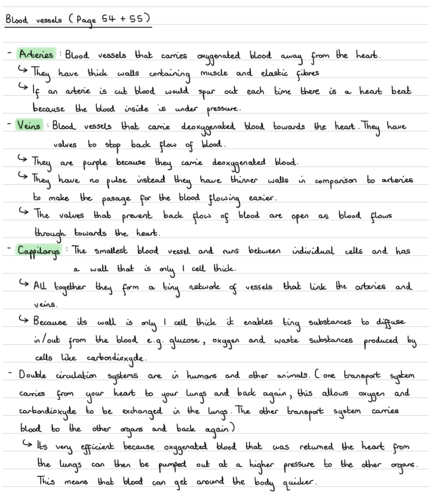 Blood vessels (Page 54 + 55)
- Arteries : Blood vessels that carries oxygenated blood away from the heart.
↳ They have thick walls containing muscle and elastic fibres
↳ If an arterie is cut blood would spur out each time there is a heart beat
because the blood inside is under pressure.
- Veins : Blood vessels that carrie deoxygenated blood towards the heart. They have
valves to stop back flow of blood.
↳ They are purple because they carrie deoxygenated blood.
↳ They have no pulse instead they have thinner walls in comparison to arteries
to make the passage for the blood flowing easier.
↳ The valves that prevent back flow of blood are open as blood flows
through towards the heart.
- Cappilarys : The smallest blood vessel and runs between individual cells and has
a wall that is only 1 cell thick.
↳ All together they form a tiny network of vessels that link the arteries and
veins.
↳ Because its wall is only 1 cell thick it enables tiny substances to diffuse
in/out from the blood e.g. glucose, oxygen and waste substances produced by
cells like carbondioxyde.
- Double circulation systems are in humans and other animals. (one transport system
carries from your heart to your lungs and back again, this allows oxygen and
carbondioxyde to be exhanged in the lungs. The other transport system carries
blood to the other organs and back again)
↳ Its very efficient because oxygenated blood that was returned the heart from
the lungs can then be pumped out at a higher pressure to the other organs.
This means that blood can get around the body quicker.